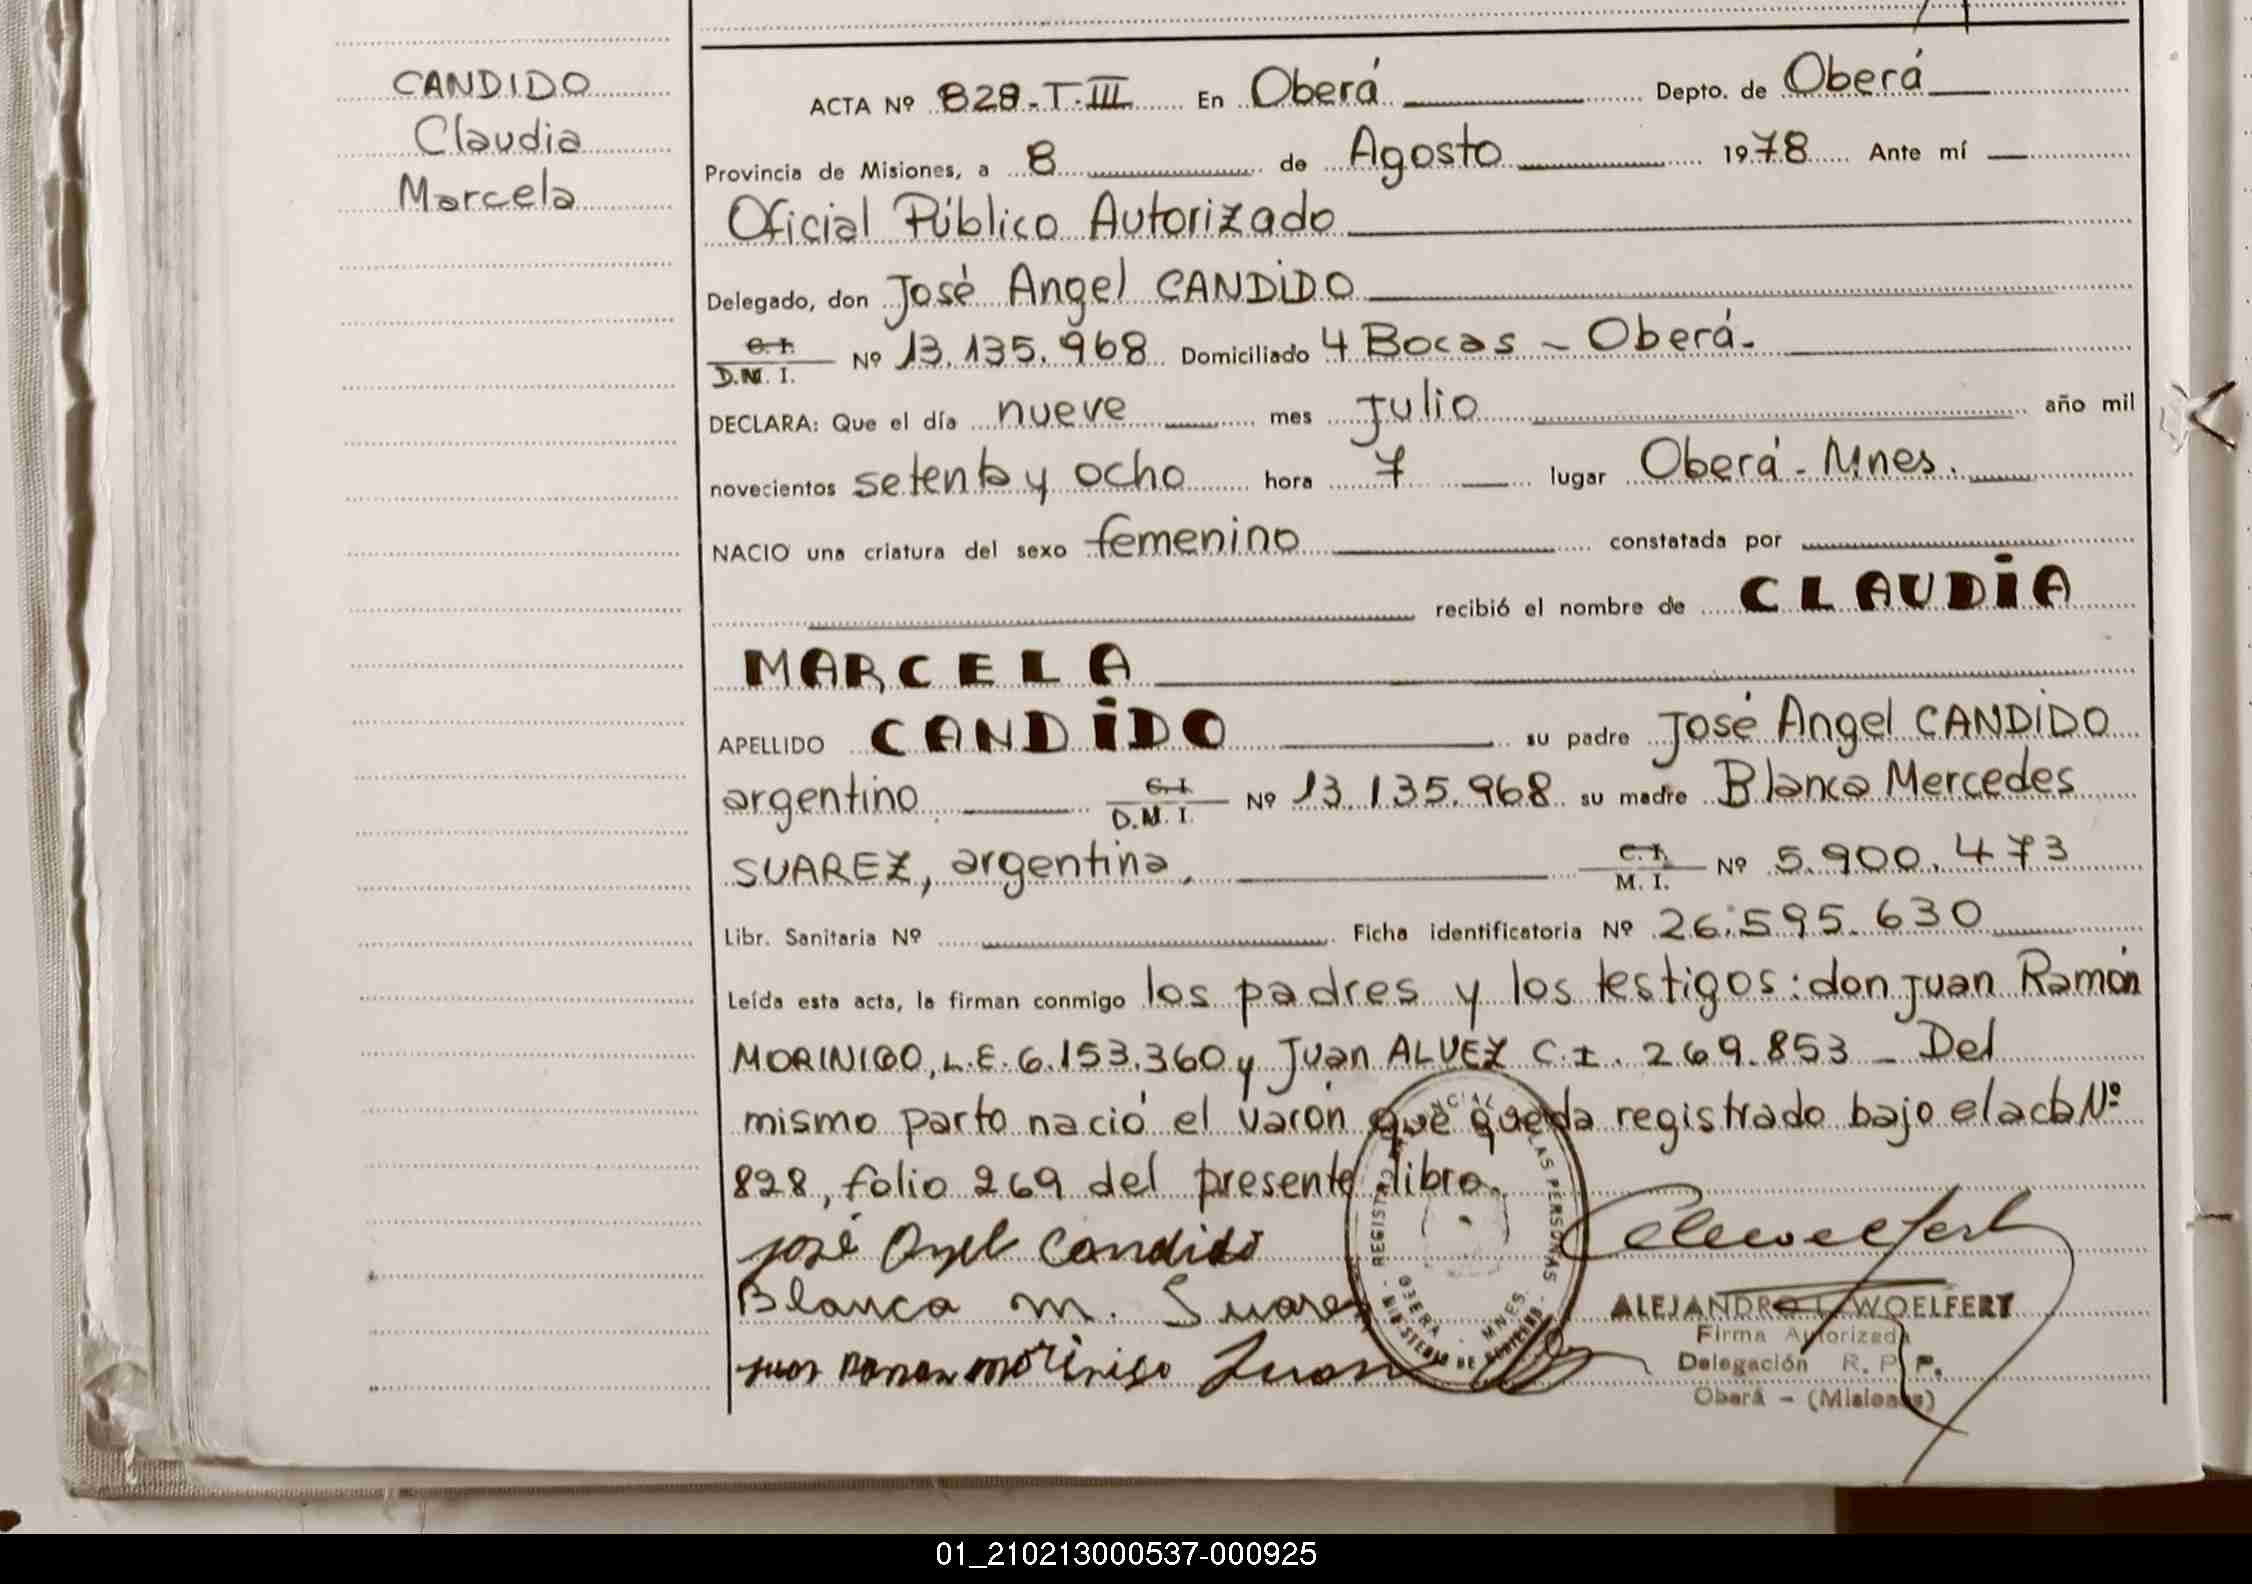 CANDIDO
Claudia
Marcela
ACTA Nº 829-T.III En Oberá Depto. de Oberá
Provincia de Misiones, a 8 de Agosto 1978 Ante mí
Oficial Público Autorizado
Delegado, don José Angel CANDIDO
C. I.
D.N. I. Nº 13.135.968 Domiciliado 4 Bocas - Oberá.
DECLARA: Que el día nueve mes Julio año mil
novecientos setenta y ocho hora 7 lugar Oberá - Mnes.
NACIO una criatura del sexo femenino constatada por
recibió el nombre de CLAUDIA
MARCELA
APELLIDO CANDIDO su padre José Angel CANDIDO
argentino C. I. D.N. I. Nº 13.135.968 su madre Blanca Mercedes
SUAREZ, argentina, C. I. M. I. Nº 5.900.473
Libr. Sanitaria Nº Ficha identificatoria Nº 26.595.630
Leída esta acta, la firman conmigo los padres y los testigos: don Juan Ramón
MORINIGO, L.E. 6.153.360 y Juan ALVEZ C.I. 269.853 - Del
mismo parto nació el varón que queda registrado bajo el acta Nº
828, folio 269 del presente libro.
José Angel Candido
Blanca M. Suarez
Juan Ramon Morinigo Juan
REGISTRO PROVINCIAL LAS PERSONAS
OBERA - MNES.
MINISTERIO DE GOBIERNO
ALEJANDRO L. WOELFERT
Firma Autorizada
Delegación R. P. P.
Oberá - (Misiones)
01_210213000537-000925